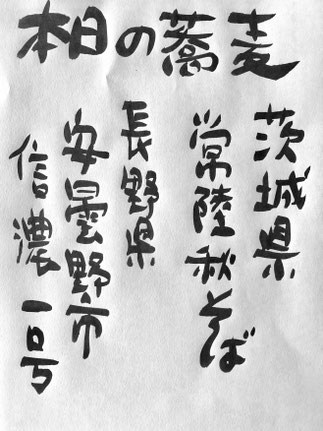 本日の蕎麦
茨城県
常陸秋そば
長野県
安曇野市
信濃一号